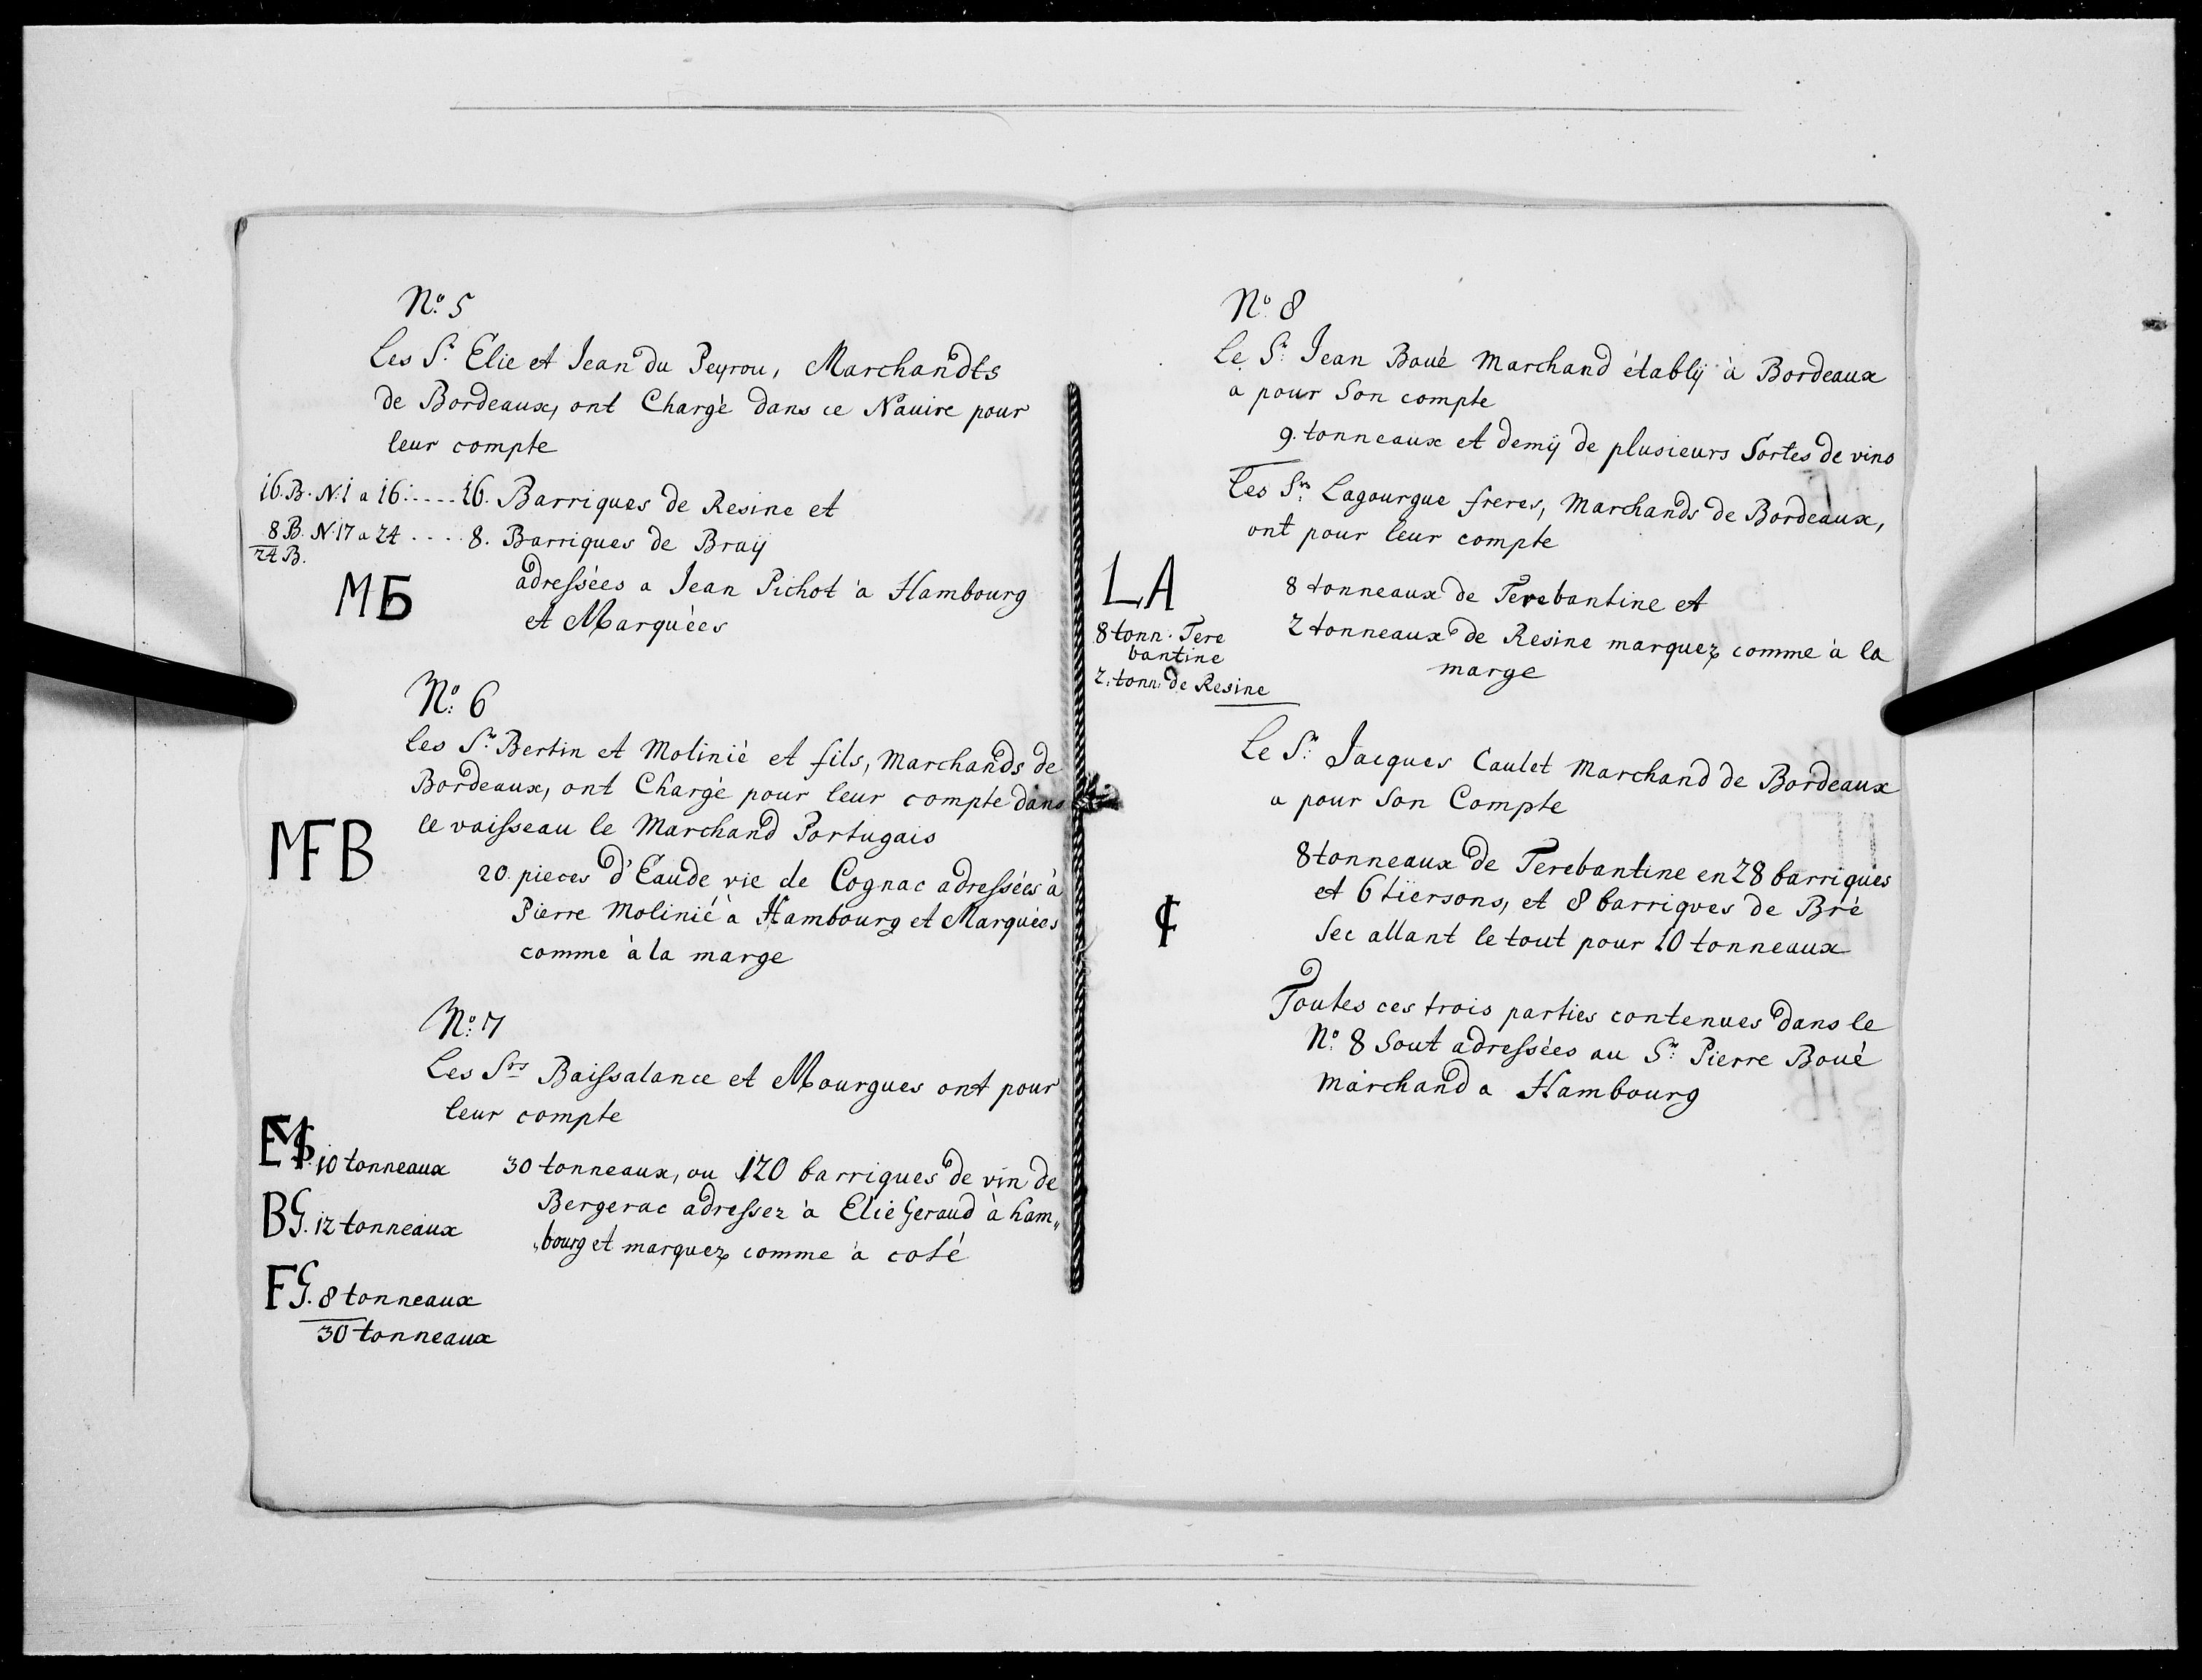 Nº: 5
Les Sr. Elie et Jean du Peyrou, Marchandts
de Bordeaux, ont Chargé dans ce Navire pour
leur compte
16. B. N: 1 a 16: .... 16. Barriques de Resine et
8 B. N: 17 a 24 .... 8. Barriques de Braij
24 B.
adressées a Jean Pichot à Hambourg
MB
et Marquées
Nº: 6
les Srs. Bertin et Molinié et fils, Marchands de
Bordeaux, ont Chargé pour leur compte dans
le vaisseau le Marchand Portugais
MFB
20. pieces d'Eaude vie de Cognac adressées à
Pierre Molinié à Hambourg et Marquées
comme à la marge
Nº: 7
Les Srs Baissalance et Mourgues ont pour
leur compte
EMS. 10 tonneaux 30 tonneaux, ou 120 barriques de vin de
Bergerac adressez à Elie Geraud à ham„
BG. 12 tonneaux
„bourg et marquez comme à coté
FG. 8 tonneaux
30 tonneaux
Nº 8
Le Sr: Jean Boué Marchand établij à Bordeaux
a pour Son compte
9. tonneaux et demij de plusieurs Sortes de vins
Les Srs: Lagourgue freres, Marchands de Bordeaux,
ont pour leur compte
LA
8 tonneaux de Terebantine et
8 tonn. Tere
bantine
2 tonneaux de Resine marquez comme à la
marge
2. tonn: de Resine
Le Sr: Jacques Caulet Marchand de Bordeaux
a pour Son Compte
8 tonneaux de Terebantine en 28 barriques
et 6 tiersons, et 8 barriques de Bré
Sec allant le tout pour 10 tonneaux
Toutes ces trois parties contenues dans le
Nº: 8 Sout adressées au Sr: Pierre Boué
marchand a Hambourg